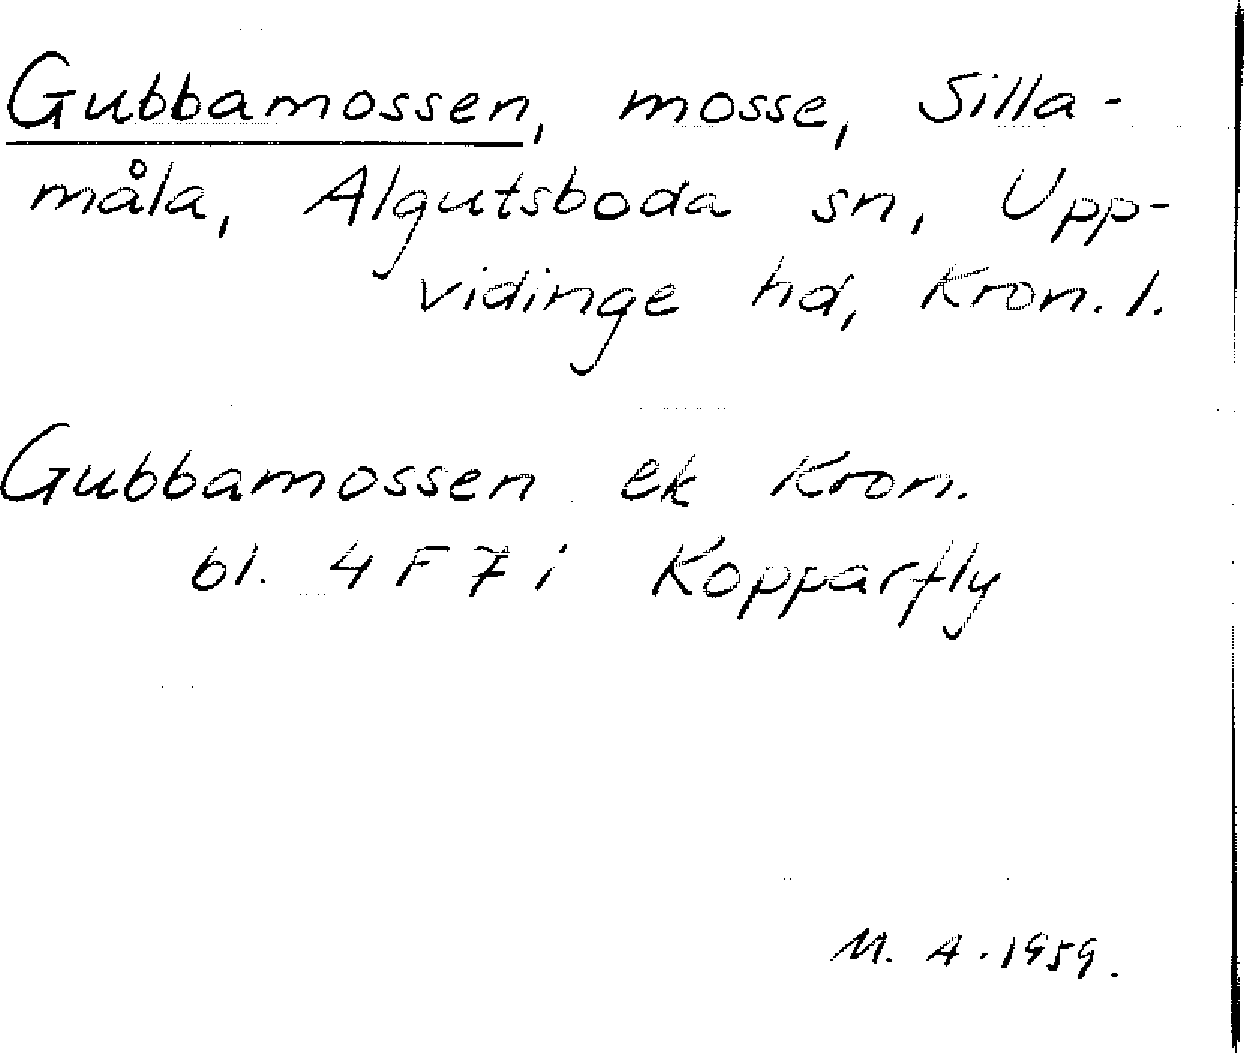 Gubbamossen, mosse, Silla-
måla, Algutsboda sn, Upp-
vidinge hd, Kron. l.
Gubbamossen ek Kron.
bl. 4 F 7 i Kopparfly
M. A. 1959.